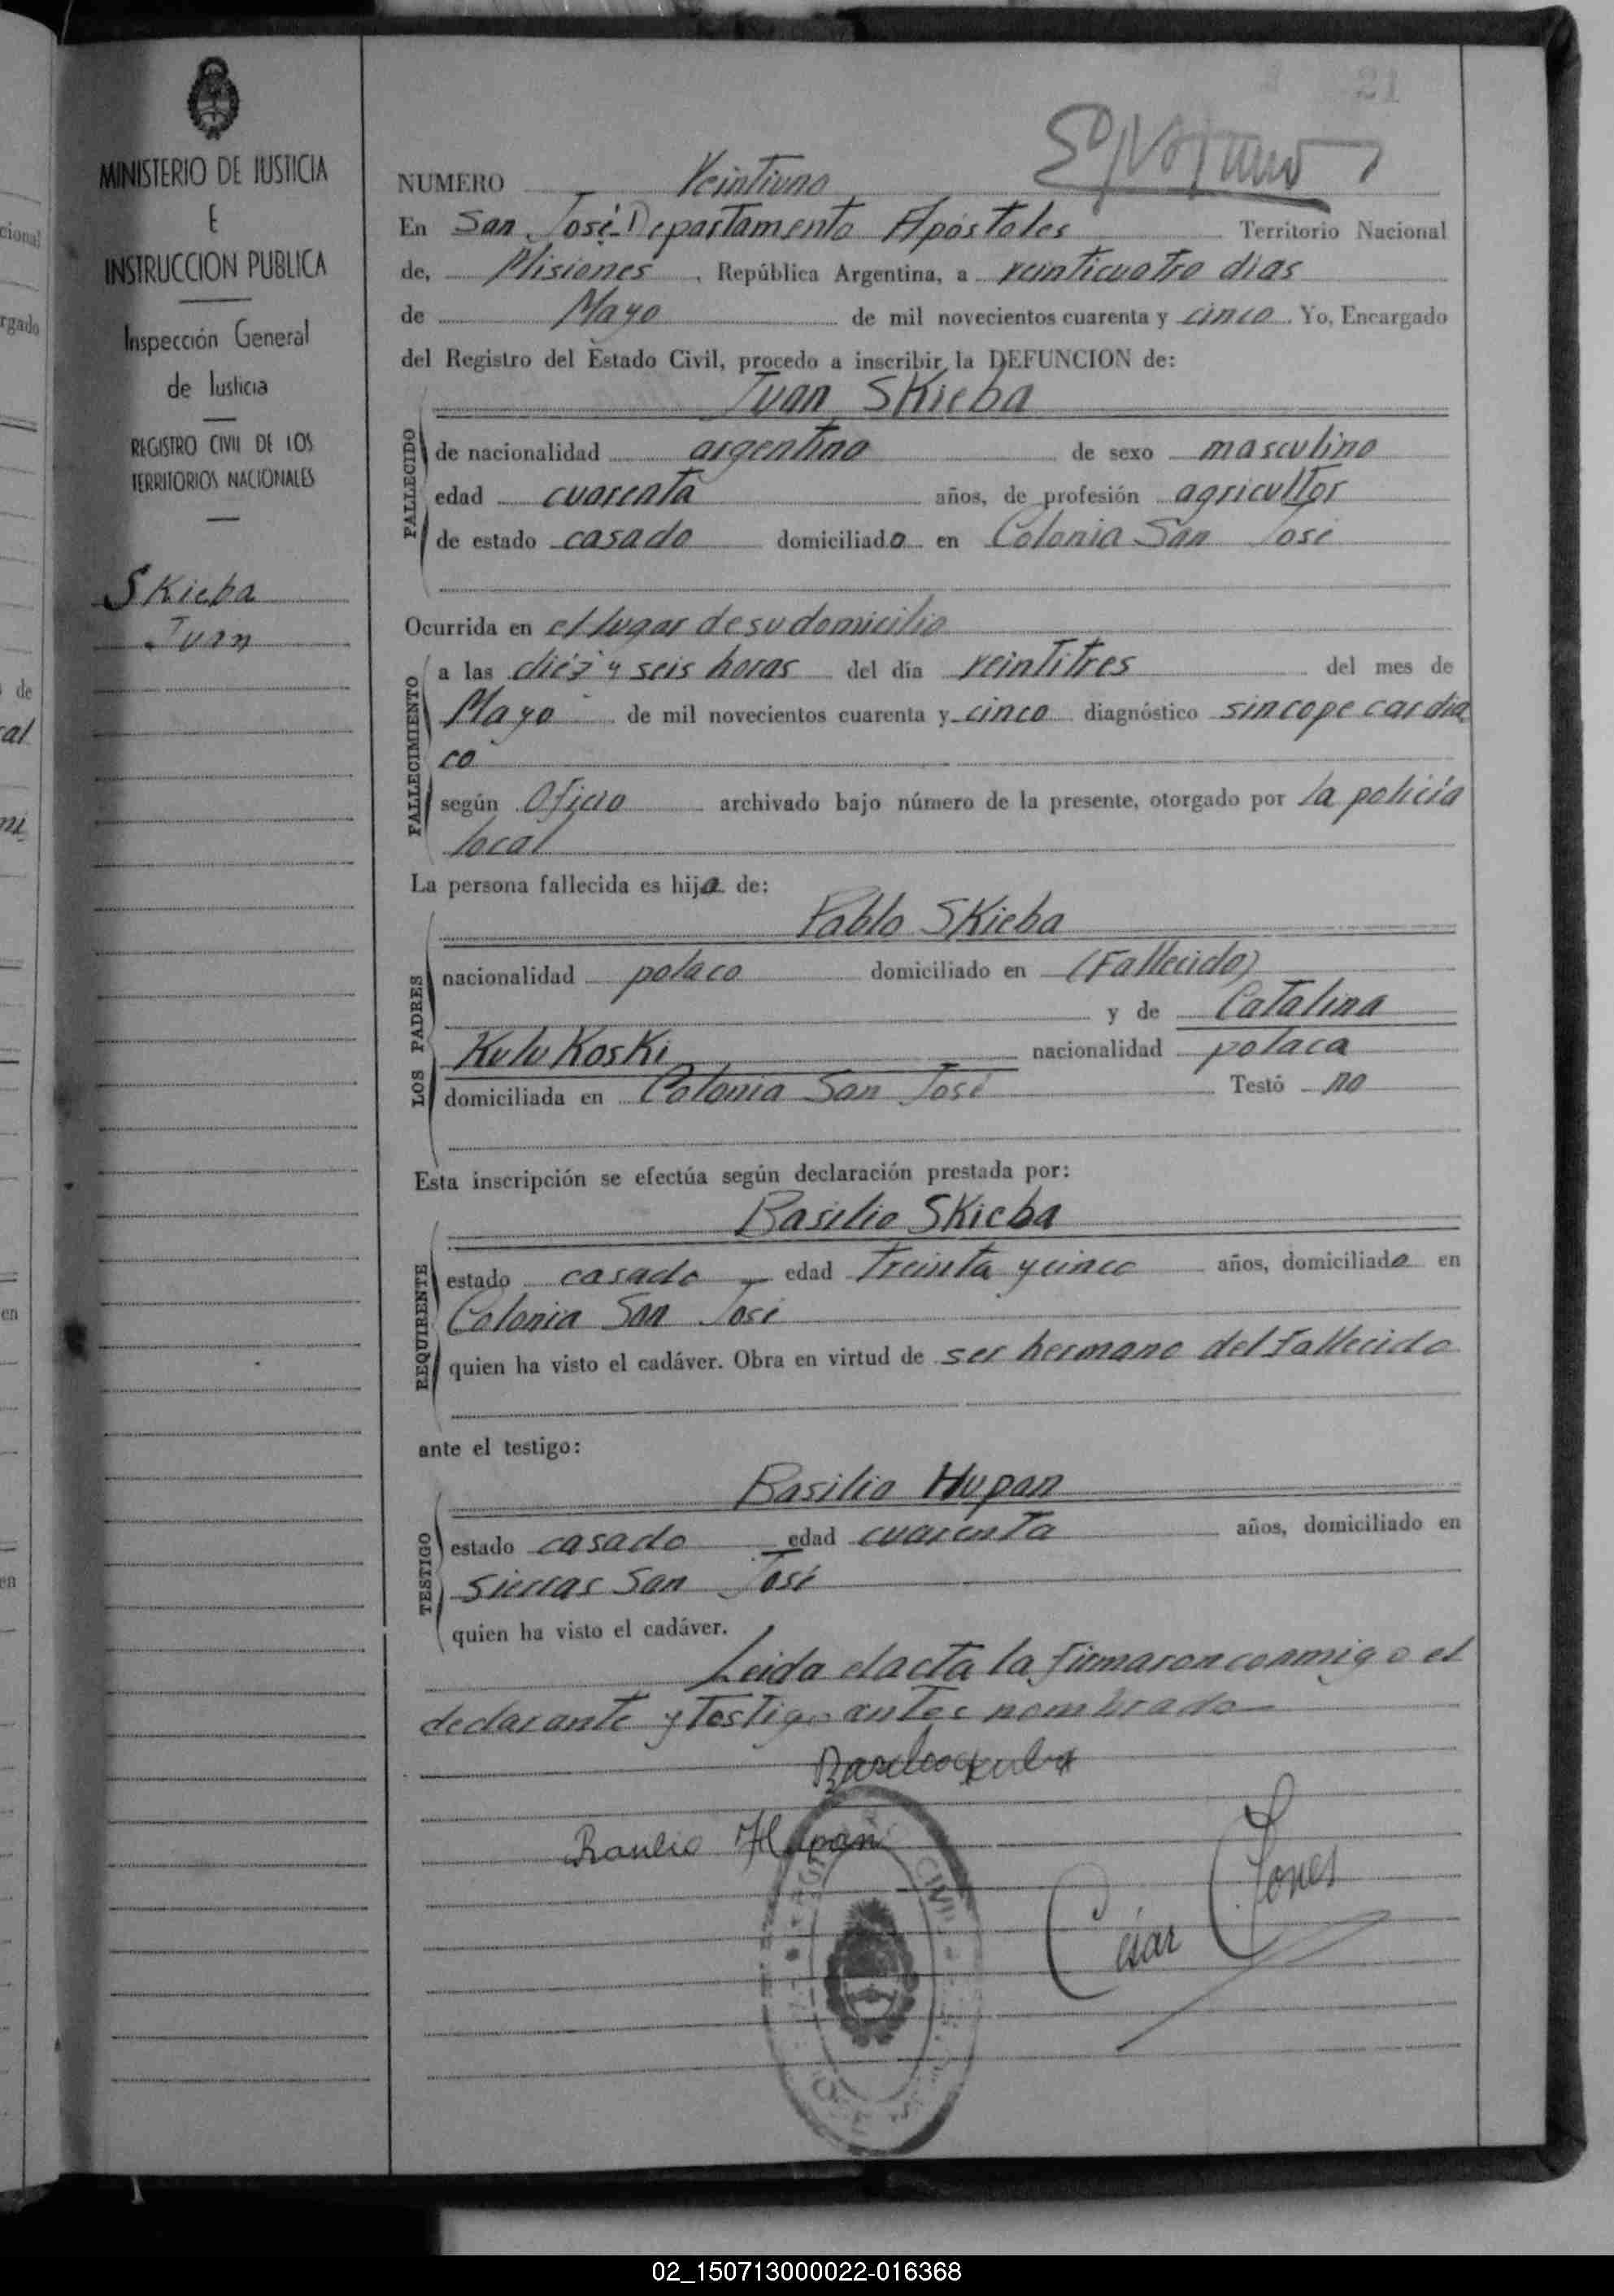 21
MINISTERIO DE JUSTICIA
E
INSTRUCCION PUBLICA
Inspección General
de Justicia
REGISTRO CIVIL DE LOS
TERRITORIOS NACIONALES
Skieba
Juan
NUMERO Veintiuno
En San José Departamento Apóstoles Territorio Nacional
de, Misiones, República Argentina, a veinticuatro dias
de Mayo de mil novecientos cuarenta y cinco. Yo, Encargado
del Registro del Estado Civil, procedo a inscribir la DEFUNCION de:
Juan Skieba
FALLECIDO
de nacionalidad argentino de sexo masculino
edad cuarenta años, de profesión agricultor
de estado casado domiciliado en Colonia San José
Ocurrida en el lugar de su domicilio
FALLECIMIENTO
a las diéz y seis horas del día veintitres del mes de
Mayo de mil novecientos cuarenta y cinco diagnóstico sincope cardia
co
según Oficio archivado bajo número de la presente, otorgado por la policía
local
La persona fallecida es hijo de:
Pablo Skieba
LOS PADRES
nacionalidad polaco domiciliado en (Fallecido)
y de Catalina
KuluKoski nacionalidad polaca
domiciliada en Colonia San José Testó no
Esta inscripción se efectúa según declaración prestada por:
Basilio Skieba
REQUIRENTE
estado casado edad treinta y cinco años, domiciliado en
Colonia San José
quien ha visto el cadáver. Obra en virtud de ser hermano del fallecido
ante el testigo:
Basilio Hupan
TESTIGO
estado casado edad cuarenta años, domiciliado en
Sierras San José
quien ha visto el cadáver.
Leida el acta la firmaron conmigo el
declarante y testigo antes nombrado
Basilio Hupan
César Jones
02_150713000022-016368